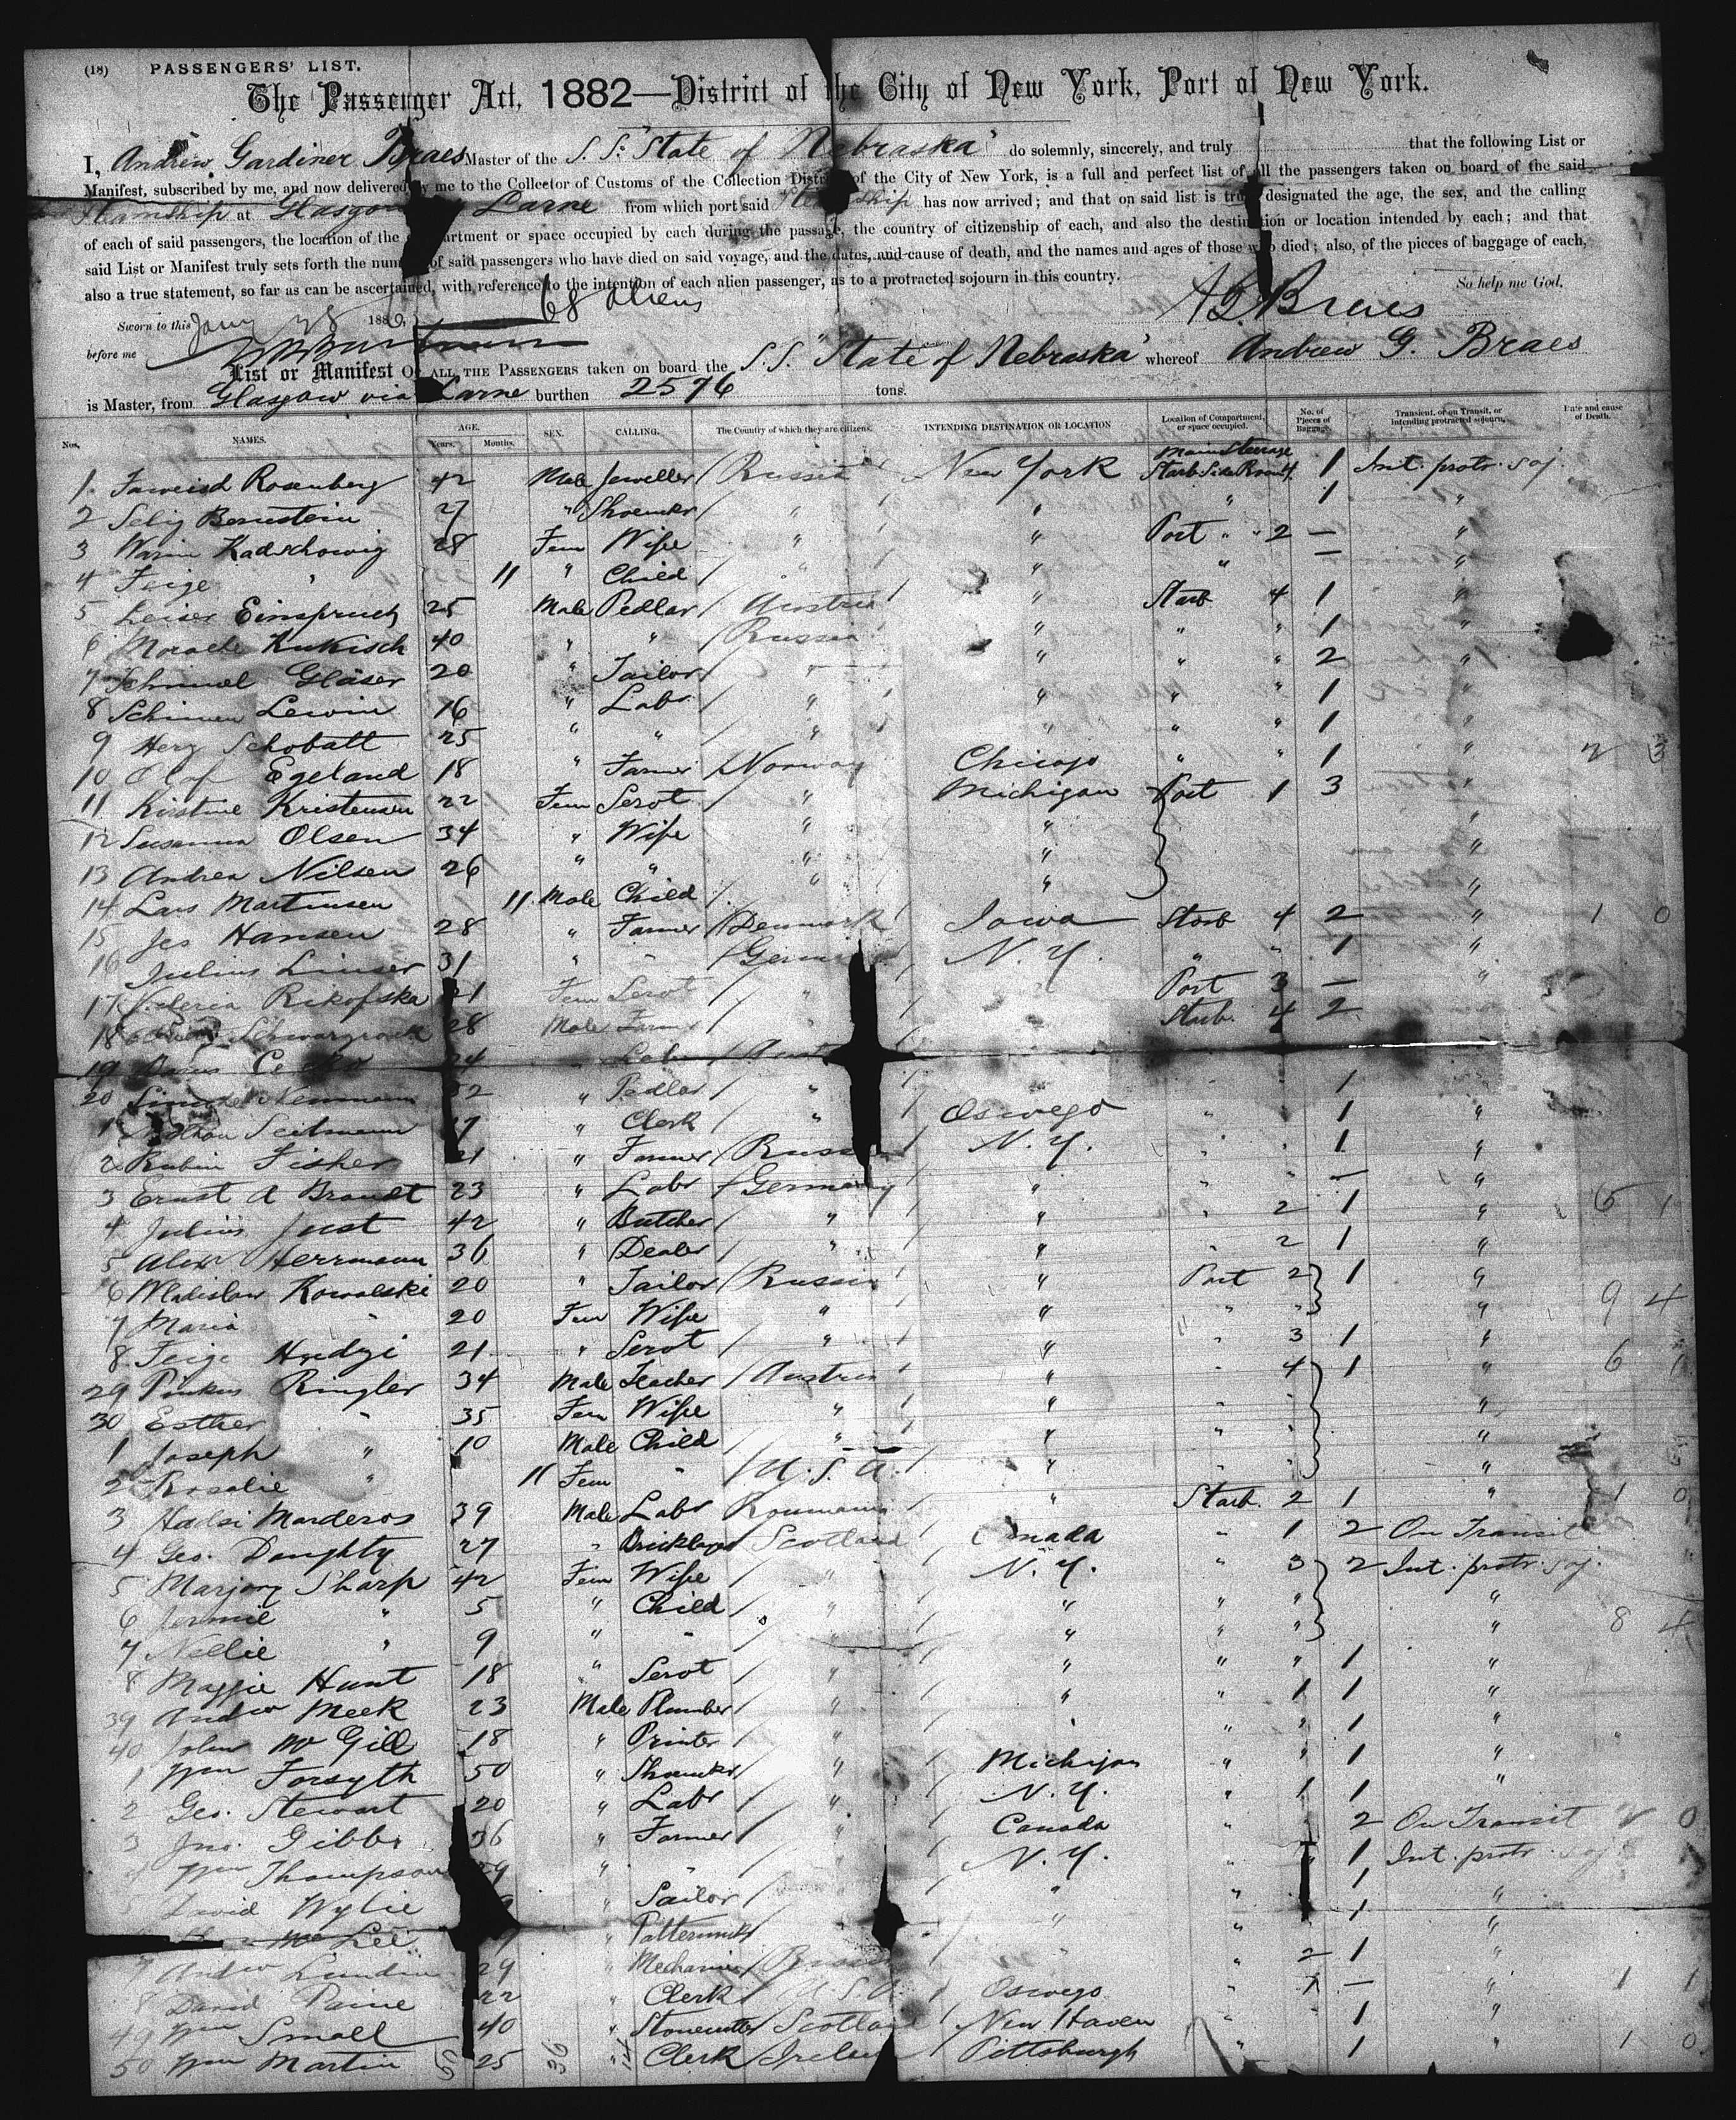 (18) PASSENGERS' LIST.
The Passenger Act, 1882—District of the City of New York, Port of New York.
I, Andrew Gardiner Braes Master of the S. S. "State of Nebraska" do solemnly, sincerely, and truly that the following List or
Manifest, subscribed by me, and now delivered by me to the Collector of Customs of the Collection District of the City of New York, is a full and perfect list of all the passengers taken on board of the said
Steamship at Glasgow Larne from which port said Steamship has now arrived; and that on said list is truly designated the age, the sex, and the calling
of each of said passengers, the location of the compartment or space occupied by each during the passage, the country of citizenship of each, and also the destination or location intended by each; and that
said List or Manifest truly sets forth the number of said passengers who have died on said voyage, and the dates, and cause of death, and the names and ages of those who died; also, of the pieces of baggage of each,
also a true statement, so far as can be ascertained, with reference to the intention of each alien passenger, as to a protracted sojourn in this country. So help me God.
68 Aliens A G Braes
Sworn to this Jany 28 188
before me
List or Manifest OF ALL THE PASSENGERS taken on board the S. S. "State of Nebraska" whereof Andrew G. Braes
is Master, from Glasgow via Larne burthen 2576 tons.
Nos. NAMES. AGE. Years. Months. SEX. CALLING. The Country of which they are citizens. INTENDING DESTINATION OR LOCATION Location of Compartment, or space occupied. No. of Pieces of Baggage. Transient, or on Transit, or intending protracted sojourn. Date and cause of Death.
1 Rosenberg 42 Male Jeweller Russia New York Main Steerage Starb Side Room 4 1 Int. protr. soj.
2 Selig Bernstein 27 " Shoemkr " " " 1 "
3 28 Fem Wife " " Port " " 2 — "
4 Feige " 11 " Child " " " — "
5 Leiser Einspruch 25 Male Pedlar Austria " Starb 4 1 "
6 40 " " Russia " " " 1 "
7 Schmuel Gläser 20 " Tailor " " " " 2 "
8 Schimen Lewin 16 " Labr " " " " 1 "
9 Herz Schobatt 25 " " " " " " 1 "
10 Olaf Egeland 18 " Farmer Norway Chicago " " 1 "
11 Kirstine Kristensen 22 Fem Servt " Michigan Port 1 3 "
12 Susanna Olsen 34 " Wife " " "
13 Andrea Nilsen 26 " " " " "
14 Lars Martinsen 11 Male Child " " "
15 Jes Hansen 28 " Farmer Denmark Iowa Starb 4 2 " 1 0
16 Julius 31 " " Germany N. Y. " " 1 "
17 Rikofska 21 Fem Servt " Port 3 — "
18 28 Male Farmer " Starb. 4 2
19 24 Labr
20 Neumann 32 " Pedlar " 1
1 " Clerk " Oswego " 1 "
2 Rubin Fisher 21 " Farmer Russia N. Y. " 1 "
3 Ernst A Brandt 23 " Labr Germany " " " — "
4 Julius Just 42 " Butcher " " " 2 1 "
5 Alex Herrmann 36 " Dealer " " " 2 1 "
6 Wladislaw Kowalski 20 " Tailor Russia " Port 2 1 "
7 Maria " 20 Fem Wife " " " " "
8 Feige 21 " Servt " " " 3 1 "
29 Pinkus Ringler 34 Male Teacher Austria " " 4 1 "
30 Esther " 35 Fem Wife " " " "
1 Joseph " 10 Male Child " " " "
2 Rosalie " 11 Fem " U. S. A. " " "
3 Marderos 39 Male Labr Roumania " Starb. 2 1 " 1 0
4 Geo. Doughty 27 " Bricklayer Scotland Canada " 1 2 On Transit
5 Marjory Sharp 42 Fem Wife " N. Y. " 3 2 Int. protr. soj.
6 " 5 " Child " " " " "
7 Nellie " 9 " " " " " " " 8 4
8 Maggie Hunt 18 " Servt " " " " 1 "
39 Andw Meek 23 Male Plumber " " 1 1 "
40 John McGill 18 " Printer " " " " 1 "
1 Wm Forsyth 50 " Shoemkr " Michigan " " 1 "
2 Geo. Stewart 20 " Labr " N. Y. " 1 1 "
3 Jno. Gibb 36 " Farmer " Canada 2 On Transit
4 Wm Thompson " " " N. Y. " 1 Int. protr. soj.
5 David Wylie " Sailor " " " 1 "
Mc Lee " Patternmkr " " 1 "
7 Andw 29 " Mechanic " 2 1 "
8 David Paine 22 " Clerk U. S. A. Oswego " 1 — " 1 1
49 Wm Small 40 " Stonecutter Scotland New Haven " 1 "
50 Wm Martin 25 " Clerk Ireland Pittsburgh " 1 " 1 0